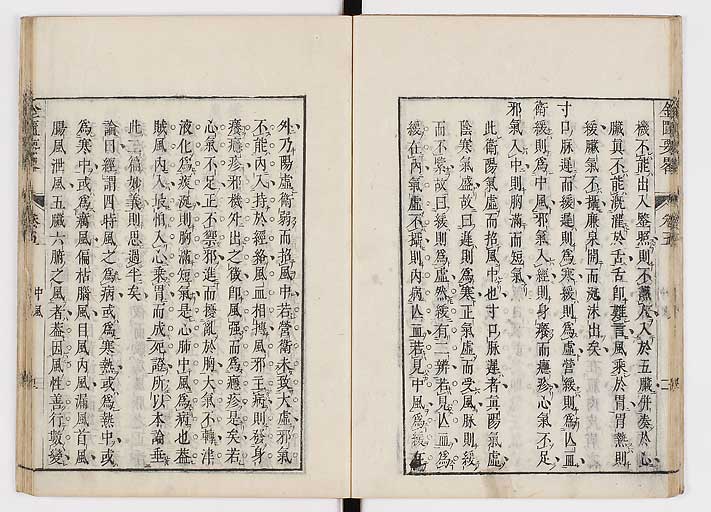 機不能出入鑒照則不識人入於五臟併湊於心
臟真不能溉灌於舌舌即難言風乘於胃胃熱則
後臟氣不攝廉泉開而涎沫出矣
寸口脉遲而緩遲則為寒緩則為虛營緩則為亡血
衛緩則為中風邪氣入經則身癢而癮疹心氣不足
邪氣入中則胸滿而短氣
此衛陽氣虛而招風中也寸口脉遲者真陽氣虛
陰寒氣盛故曰遲則為寒正氣虛而受風脉則緩
而不緊故曰緩則為虛然緩有二辨若見亡血為
緩在內氣虛不攝則內病亡血若見中風為緩在
外乃陽虛衛弱而招風中若營衛未致大虛邪氣
不能內入持於經絡風血相摶風邪主病則發身
癢癮疹邪機外出之徵即風强而為癮疹是矣若
心氣不足正不禦邪進而擾亂於胸大氣不轉津
液化為痰涎則胸滿短氣是心肺中風為病也蓋
賊風內入最惧入心乘胃而成死證所以本論垂
此二篇妙義則思過半矣
論曰經謂四時風之為病或為寒熱或為熱中或
為寒中或為癘風偏枯腦風目風內風漏風首風
腸風泄風五臟六腑之風者蓋因風性善行數變
金匱要畧
卷五
中風